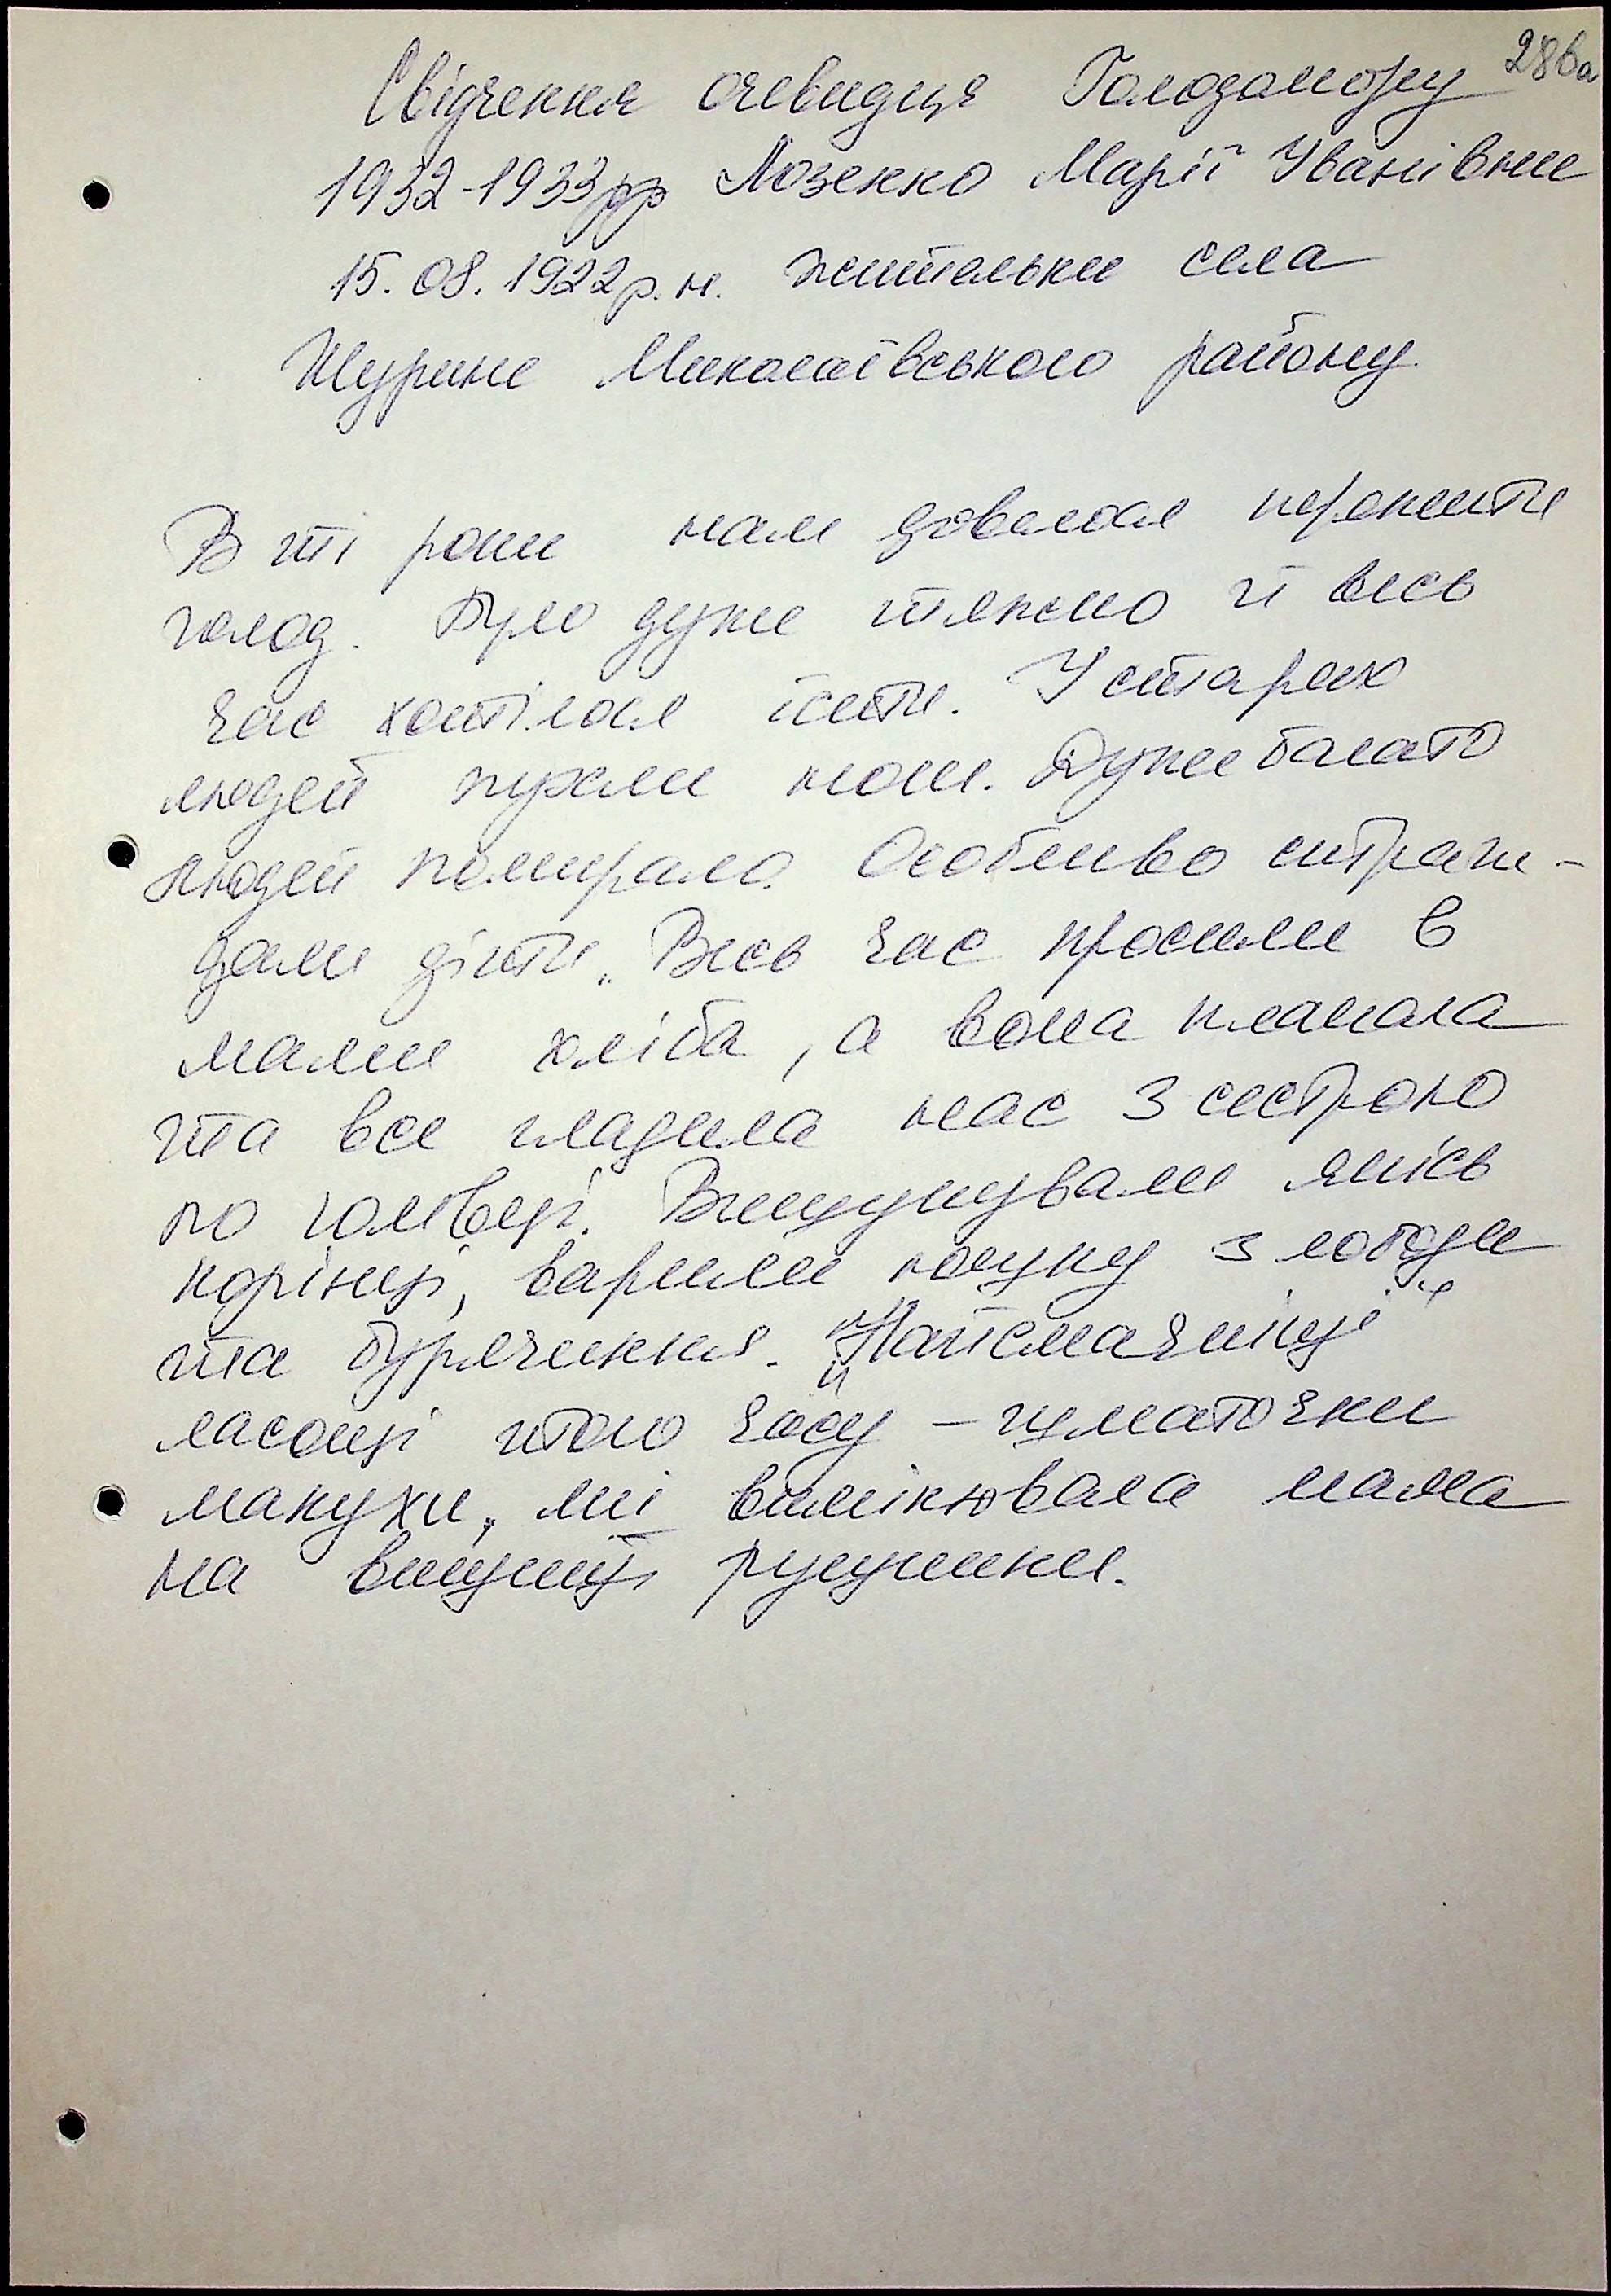 286а
Свідчення очевидця Голодомору
1932-1933рр Лозенко Марії Іванівни
15.08.1922р.н. жительки села
Шурине Миколаївського району.
В ті роки нам довелося пережити
голод. Було дуже тяжко й весь
час хотілося їсти. У старих
людей пухли ноги. Дуже багато
людей помирало. Особливо страж-
дали діти. Весь час просили в
мами хліба, а вона плакала
та все гладила нас з сестрою
по голівці. Вишукували якісь
корінці, варили юшку з лободи
та бурячиння. "Найсмачніші"
ласощі того часу – шматочки
макухи, які вимінювала мама
на вишиті рушники.